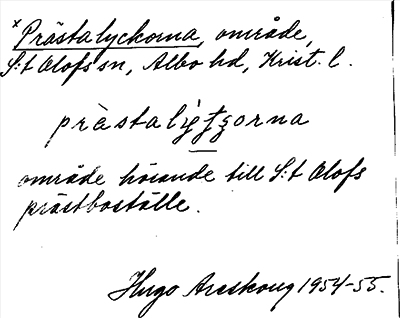 * Prästalyckorna, område,
S:t Olofs sn, Albo hd, Krist. l.
område hörande till S:t Olofs
prästboställe.
Hugo Areskoug 1954-55.